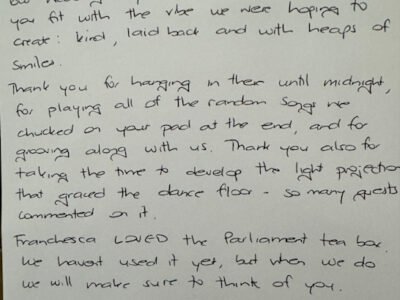 you fit with the vibe we were hoping to
create: kind, laid back and with heaps of
smiles.
Thank you for hanging in there until midnight,
for playing all of the random songs we
chucked on your pad at the end, and for
grooving along with us. Thank you also for
taking the time to develop the light projection
that graced the dance floor - so many guests
commented on it.
Franchesca LOVED the Parliament tea box.
We havent used it yet, but when we do
we will make sure to think of you.